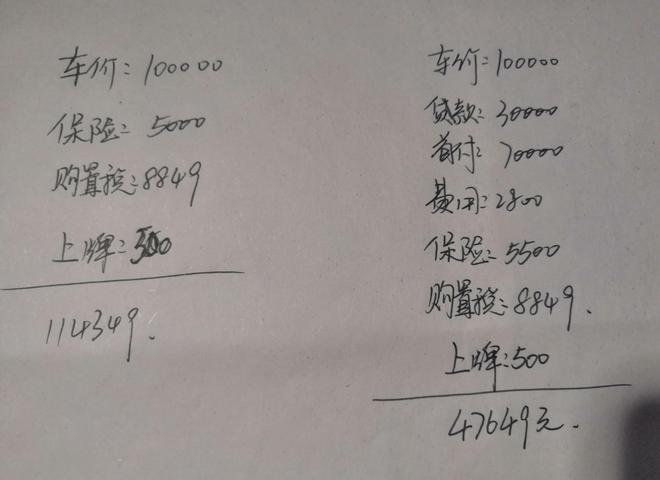 车价:100000
保险:5000
购置税:8849
上牌:500
114349.
车价:100000
贷款:30000
首付:70000
费用:2800
保险:5500
购置税:8849.
上牌:500
47649元.